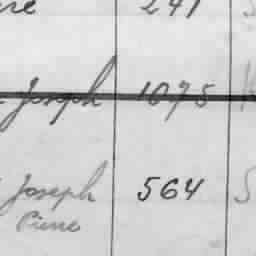 241
Joseph 1075
Joseph 564
Pierre